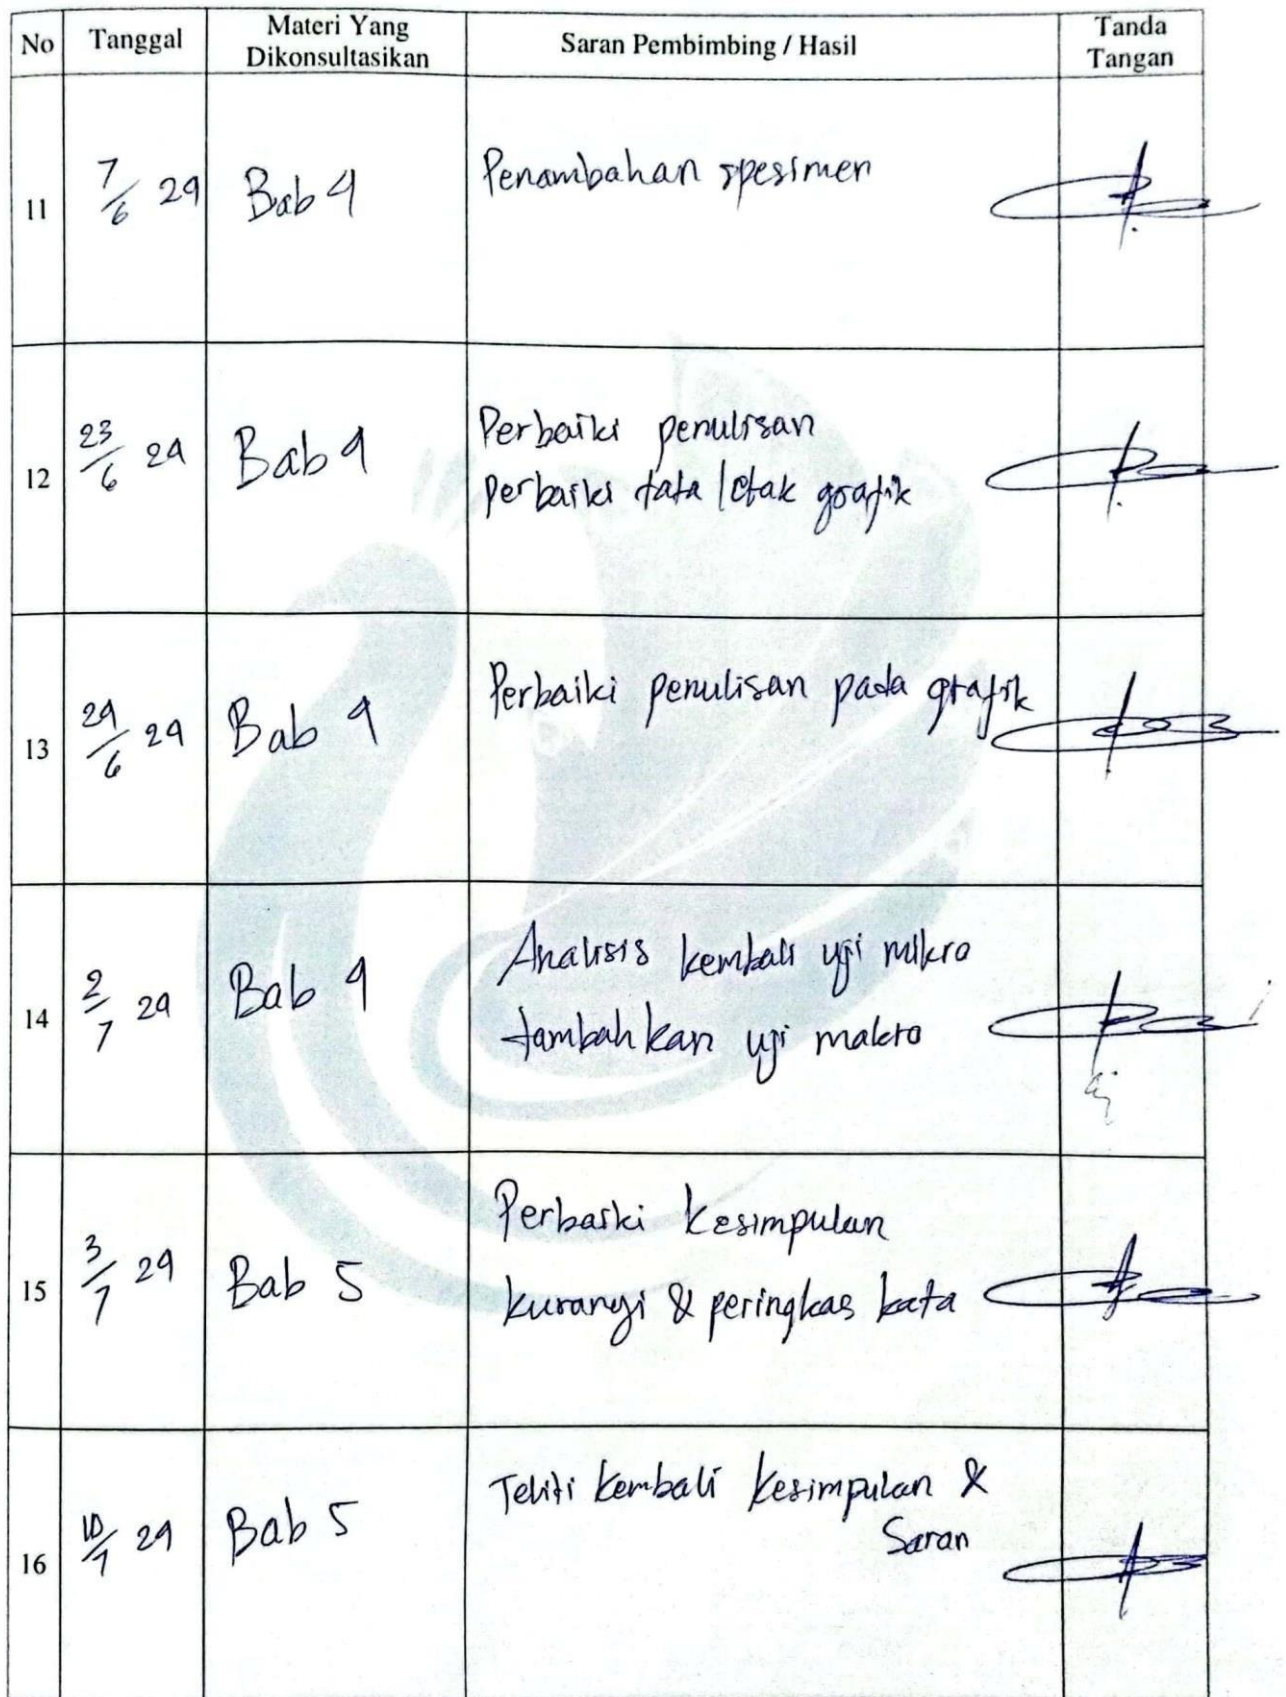 No Tanggal Materi Yang Dikonsultasikan Saran Pembimbing / Hasil Tanda Tangan
11 7/6 24 Bab 4 Penambahan spesimen
12 23/6 24 Bab 4 Perbaiki penulisan
perbaiki tata letak grafik
13 24/6 24 Bab 4 Perbaiki penulisan pada grafik
14 2/7 24 Bab 4 Analisis kembali uji mikro
tambahkan uji makro
15 3/7 24 Bab 5 Perbaiki kesimpulan
kurangi & peringkas kata
16 10/7 24 Bab 5 Teliti kembali kesimpulan &
Saran